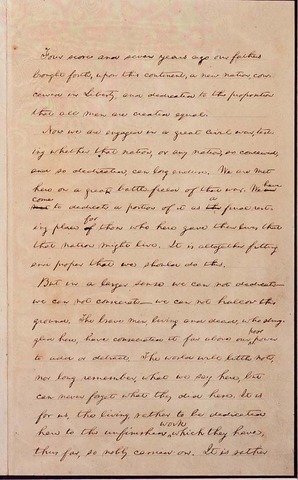 Four score and seven years ago our fathers
brought forth, upon this continent, a new nation, con-
ceived in Liberty, and dedicated to the proposition
that all men are created equal.
Now we are engaged in a great civil war, test-
ing whether that nation, or any nation, so conceived,
and so dedicated, can long endure. We are met
here on a great battle-field of that war. We have
come to dedicate a portion of it as a final rest-
ing place for those who here gave their lives that
that nation might live. It is altogether fitting
and proper that we should do this.
But in a larger sense we can not dedicate—
we can not consecrate—we can not hallow this
ground. The brave men, living and dead, who strug-
gled here, have consecrated it far above our poor power
to add or detract. The world will little note,
nor long remember, what we say here, but
can never forget what they did here. It is
for us, the living, rather to be dedicated
here to the unfinished work which they have,
thus far, so nobly carried on. It is rather